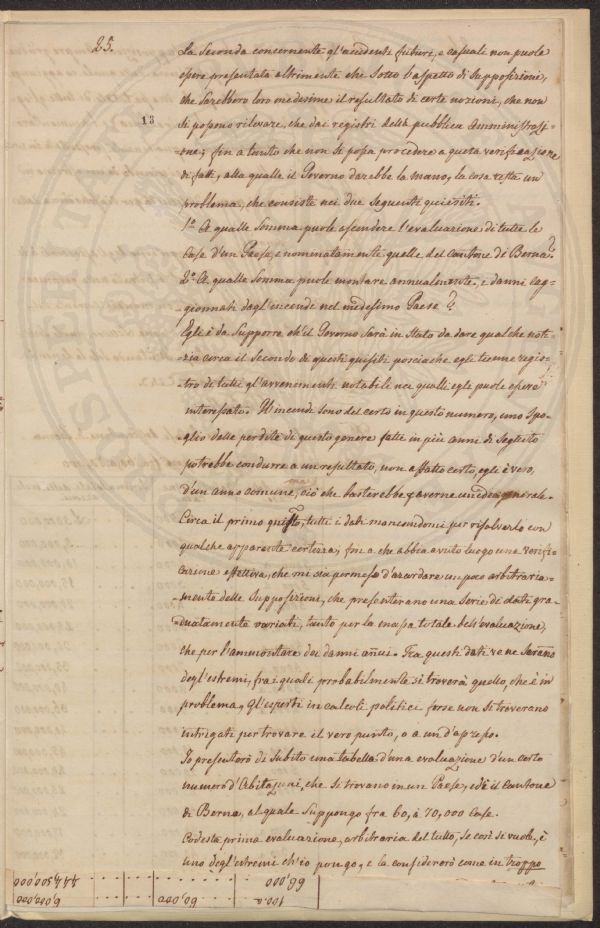 25.
13
La Seconda concernente gl'accidenti futuri, e casuali non puole
essere presentata altrimente che sotto l'aspetto di supposizione,
che sarebbero loro medesime il resultato di certe nozioni, che non
si possono rilevare, che dai registri della pubblica amministrazi-
-one; fin a tanto che non si possa procedere a questa verificazione
di fatti, alla qualle il Governo darebbe la mano, la cosa resta un
problema, che consiste nei due seguenti quisiti.
1.º A qualle somma puole ascendere l'evaluazione di tutte le
Case d'un Paese, e nominatamente quelle del Cantone di Berna?
2.º A qualle somma puole montare annualmente, e danni cag-
-gionnati dagl'incendi nel medesimo Paese?
Egli è da supporre ch'il Governo sarà in stato da dare qualche noti-
-zia circa il secondo di questi quisiti posciache egli tienne regis-
-tro di tutti gl'avvenimenti notabili nei qualli egli puole essere
interessato. Gl'incendi sono del certo in questo numero, uno spo-
-glio delle perdite di questo genere fatti in più anni di seguito
potrebbe condurre a un resultato, non affatto certo, egli è vero,
d'un anno comune, ciò che basterebbe per averne un idea generale.
Circa il primo quisito, tutti i dati mancandomi per risolverlo con
qualche apparente certezza, fin a che abbia avuto luogo una verifi-
-cazione effettiva, che mi sia permesso d'azardare un poco arbitraria-
-mente delle supposizioni, che presenterano una serie di dati gra-
-duatamente variati, tanto per la massa totale dell'evaluazione,
che per l'ammontare dei danni añui. Fra questi dati ve ne sarañno
degl'estremi, fra i quali probabilmente si troverà quello, che è in
problema, gl'esperti in calcoli politici forse non si troverano
intrigati per trovare il vero punto, o a un d'apresso.
Io presenterò di subito una tabella d'una evaluazione d'un certo
numero d'Abitazioni, che si trovano in un Paese, ed è il Cantone
di Berna, al quale suppongo fra 60, à 70,000 Case.
Codesta prima evaluazione, arbitraria del tutto, se così si vuole, è
uno degl'estremi ch'io pongo, e la considererò come in troppo
66,000
44,500,000
100.
60,000
6,000,000